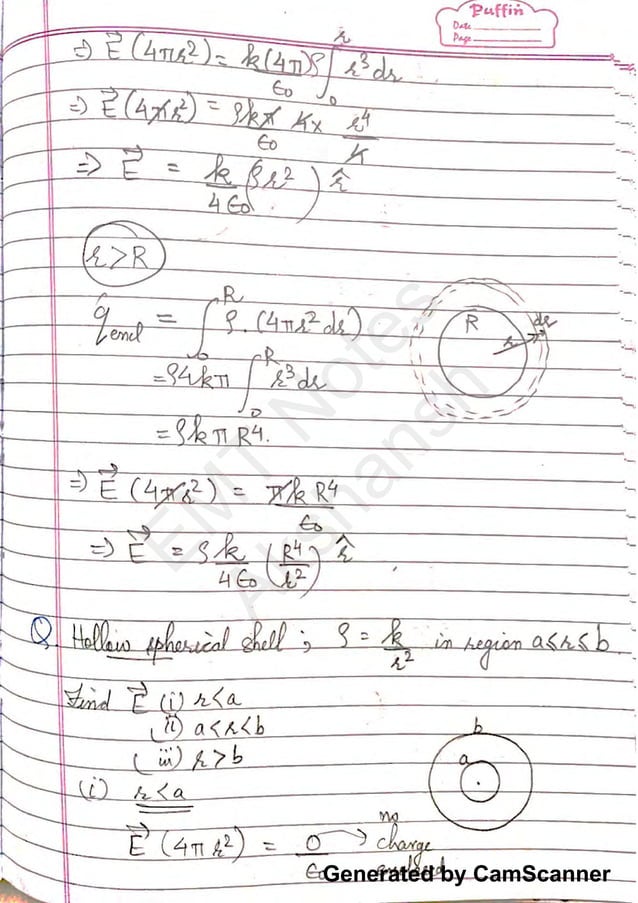 Puffin
Date
Page
⇒ E⃗ (4πr²) = k(4π)ρ/ϵ₀ ∫₀ʳ r³dr
⇒ E⃗ (4πr²) = ρkπ/ϵ₀ 4 × r⁴/4
⇒ E⃗ = k/4ϵ₀ (ρr²) r̂
r > R
q encl = ∫₀ᴿ ρ. (4πr²dr)
= ρ4kπ ∫₀ᴿ r³dr
= ρkπR⁴.
R r dr
⇒ E⃗ (4πr²) = πkR⁴/ϵ₀
⇒ E⃗ = ρ k/4ϵ₀ (R⁴/r²) r̂
EMT Notes
Akshansh
Q. Hollow spherical shell ; ρ = k/r² in region a≤r≤b.
Find E⃗ (i) r<a
(ii) a<r<b
(iii) r>b
b
a
(i) r<a
E⃗ (4πr²) = 0/ϵ₀ → no charge enclosed
Generated by CamScanner